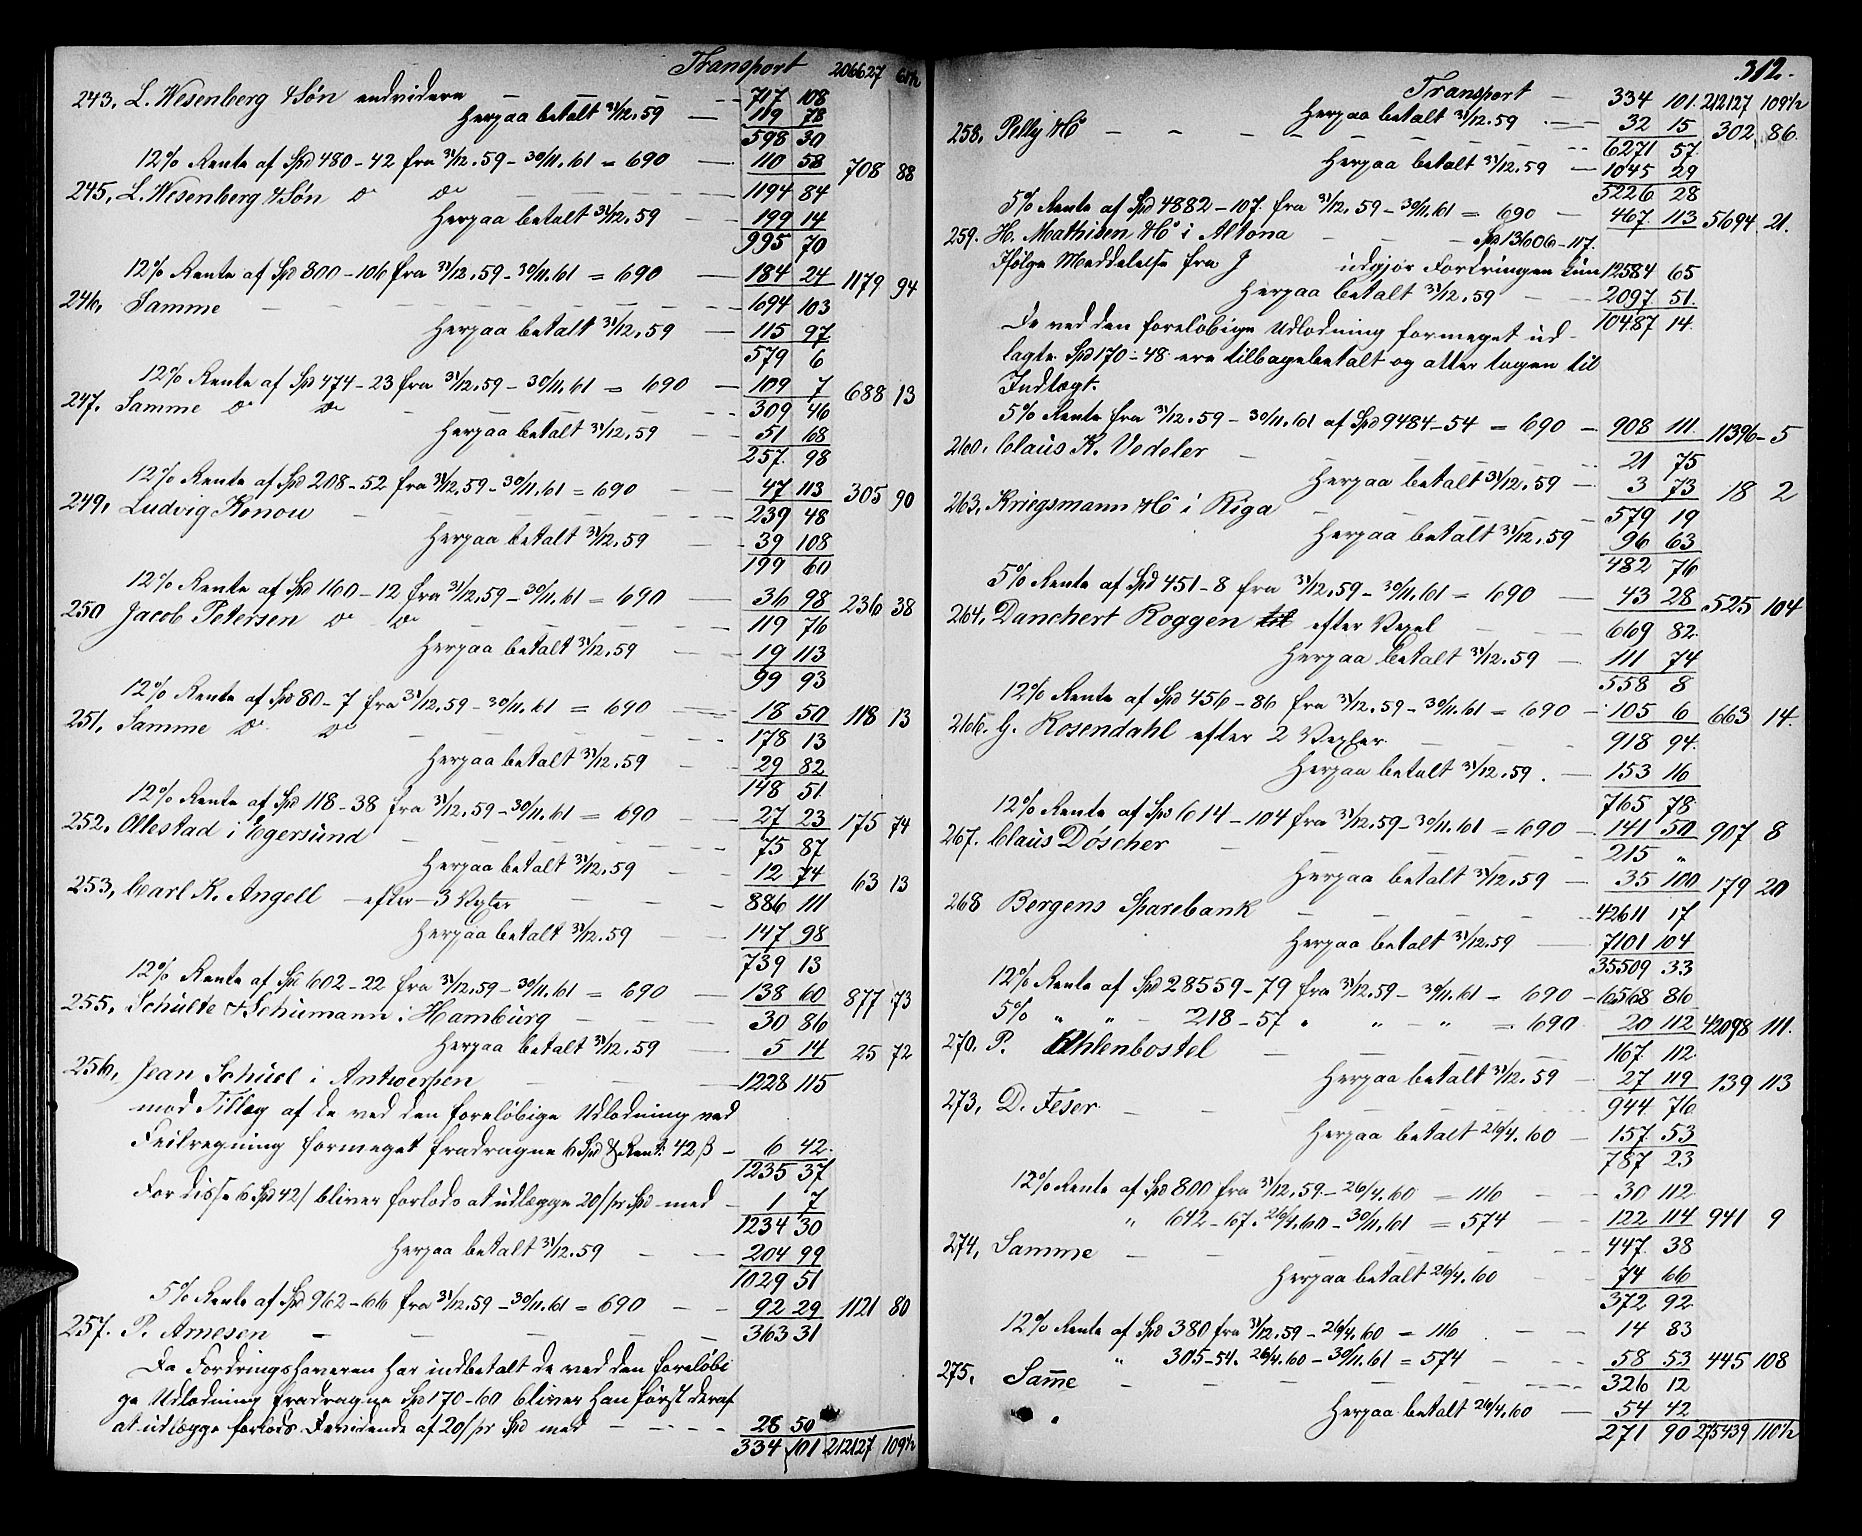 Transport 206627 61½
243, L. Wesenberg & Søn endvidere — 717 108
Herpaa betalt 31/12. 59 — 119 78
598 30
12% Rente af Spd 480-42 fra 31/12. 59 - 30/11. 61 = 690 — 110 58 708 88
245, L. Wesenberg & Søn do do — 1194 84
Herpaa betalt 31/12. 59 — 199 14
995 70
12% Rente af Spd 800-106 fra 31/12. 59 - 30/11. 61 = 690 — 184 24 1179 94
246, Samme — 694 103
Herpaa betalt 31/12. 59 — 115 97
579 6
12% Rente af Spd 474-23 fra 31/12. 59 - 30/11. 61 = 690 — 109 7 688 13
247. Samme do do — 309 46
Herpaa betalt 31/12. 59 — 51 68
257. 98
12% Rente af Spd 208-52 fra 31/12. 59 - 30/11. 61 = 690 — 47 113 305 90
249, Ludvig Konow — 239 48
Herpaa betalt 31/12. 59 — 39 108
199 60
12% Rente af Spd 160-12 fra 31/12. 59 - 30/11. 61 = 690 — 36 98 236 38
250 Jacob Petersen do do — 119 76
Herpaa betalt 31/12. 59 — 19 113
99 93
12% Rente af Spd 80-7 fra 31/12. 59 - 30/11. 61 = 690 — 18 50 118 13
251, Samme do do — 178 13
Herpaa betalt 31/12. 59 — 29 82
148 51
12% Rente af Spd 118-38 fra 31/12. 59 - 30/11. 61 = 690 — 27 23 175 74
252, Ollestad i Egersund — 75 87
Herpaa betalt 31/12. 59 — 12 74 63 13
253, Carl K. Angell — efter 3 Vexler — 886 111
Herpaa betalt 31/12. 59 — 147 98
739 13
12% Rente af Spd 602-22 fra 31/12. 59 - 30/11. 61 = 690 — 138 60 877 73
255, Schulte & Schumann i Hamburg — 30 86
Herpaa betalt 31/12. 59 — 5 14 25 72
256, Jean Schuel i Antwerpen — 1228 115
med Tillæg af de ved den foreløbige Udlodning ved
Feilregning formeget fradragne 6 Spd & Rent. 42 ß — 6 42
1235 37
For disse 6 Spd 42 ß bliver forlods at udlægge 20 ß pr Spd med — 1 7
1234 30
Herpaa betalt 31/12. 59 — 204 99
1029 51
5% Rente af Spd 962-66 fra 31/12. 59 - 30/11. 61 = 690 — 92 29 1121 80
257. P. Arnesen — 363 31
Da Fordringshaveren har indbetalt de ved den foreløbi-
ge Udlodning fradragne Spd 170-60 bliver han først deraf
at udlægge forlods Dividende af 20 ß pr Spd med — 28 50
334 101 212127 109½
312.
Transport — 334 101 212127 109½
Herpaa betalt 31/12. 59 — 32 15 302 86
258, Pelly & Co — 6271 57
Herpaa betalt 31/12. 59 — 1045 29
5226 28
5% Rente af Spd 4882-107. fra 31/12. 59 - 30/11. 61 = 690 — 467 113 5694 21.
259. H. Mathisen & Co i Altona — Spd 13606-117.
Ifølge Meddelelse fra J udgjør Fordringen kun 12584 65
Herpaa betalt 31/12. 59 — 2097 51.
10487 14
De ved den foreløbige Udlodning formeget ud-
lagte Spd 170-48 ere tilbagebetalt og atter tagen til
Indtægt.
5% Rente fra 31/12. 59 - 30/11. 61 af Spd 9484-54 = 690 — 908 111 11396 5
260. Claus K. Vedeler — 21 75
Herpaa betalt 31/12. 59 — 3 73 18 2
263, Kriegsmann & Co i Riga — 579 19
Herpaa betalt 31/12. 59 96 63
482 76
5% Rente af Spd 451-8 fra 31/12. 59 - 30/11. 61 = 690 — 43 28 525 104
264, Danchert Roggen til efter Vexel — 669 82
Herpaa betalt 31/12. 59 — 111 74
558 8
12% Rente af Spd 456-86 fra 31/12. 59 - 30/11. 61 = 690 — 105 6 663 14.
266. G. Rosendahl efter 2 Vexler — 918 94
Herpaa betalt 31/12. 59. — 153 16
765 78
12% Rente af Spd 614-104 fra 31/12. 59 - 30/11. 61 = 690 — 141 50 907 8
267. Claus Döscher — 215 „
Herpaa betalt 31/12. 59 — 35 100 179 20
268 Bergens Sparebank — 42611 17
Herpaa betalt 31/12. 59 — 7101 104
35509 33
12% Rente af Spd 28559-79 fra 31/12. 59 - 30/11. 61 = 690 — 6568 86
5% „ „ — 218-57 „ „ — „ = 690 20 112 42098 111.
270. P. Ahlenbostel — 167. 112
Herpaa betalt 31/12. 59 — 27 119 139 113
273, D. Feser — 944 76
Herpaa betalt 26/4. 60 — 157. 53
787 23
12% Rente af Spd 800 fra 31/12. 59 - 26/4. 60 = 116 — 30 112
„ 642-67. 26/4. 60 - 30/11. 61 = 574 — 122 114 941 9
274, Samme — 447 38
Herpaa betalt 26/4. 60 — 74 66
372 92
12% Rente af Spd 380 fra 31/12. 59 - 26/4. 60 = 116 — 14 83
„ 305-54. 26/4. 60 - 30/11. 61 = 574 — 58 53 445 108
275. Samme — 326 12
Herpaa betalt 26/4. 60 — 54 42
271 90 275439 110½